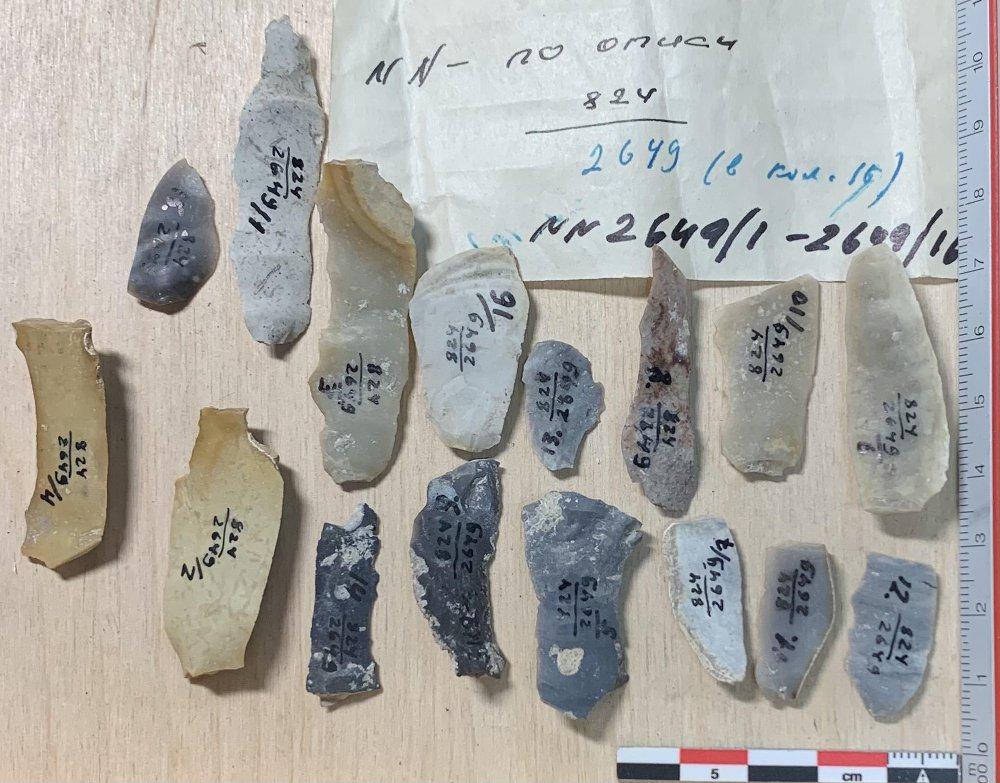 NN - по описи
824
2649 (в кол. 15)
NN 2649/1 - 2649/16
824
2649/1
824
2649
824
2649/16
13. 824
2649
8. 824
2649
824
2649/10
824
2649
6
824
2649/4
824
2649/2
824
2649
824
2649
824
2649
824
2649/7
824
2649
12. 824
2649
10
9
8
7
6
5
4
3
2
1
0
5
cm